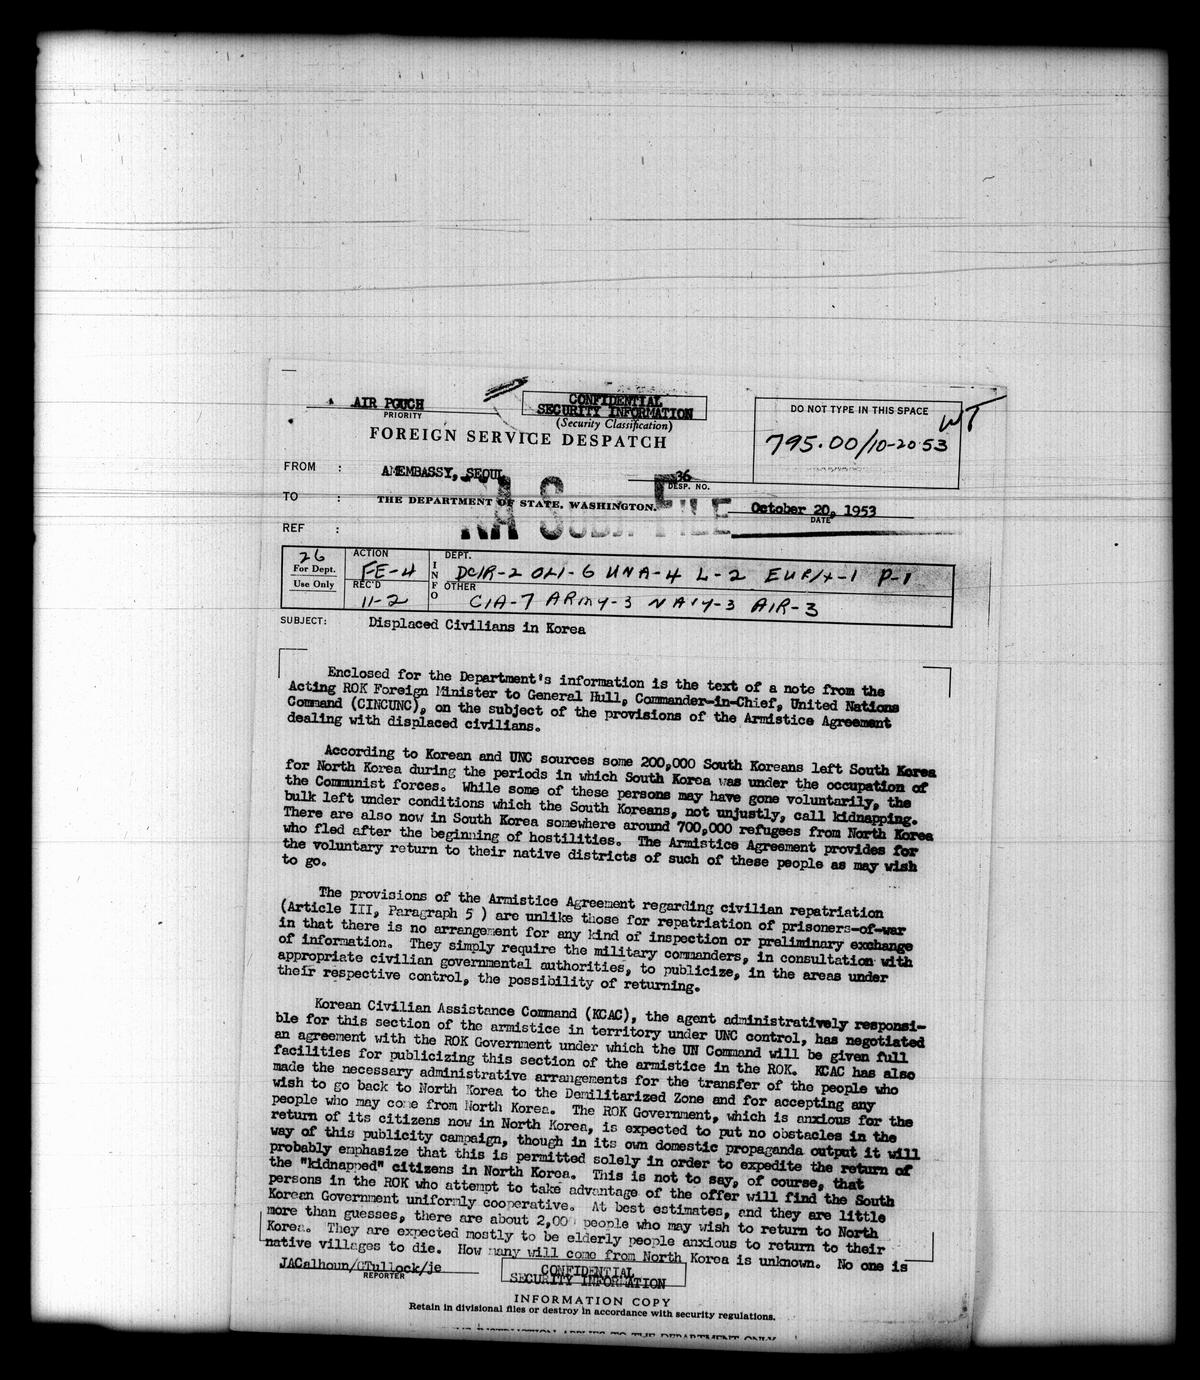 AIR POUCH
PRIORITY
CONFIDENTIAL
SECURITY INFORMATION
(Security Classification)
DO NOT TYPE IN THIS SPACE
WT
795.00/10-2053
FOREIGN SERVICE DESPATCH
FROM : AMEMBASSY, SEOUL
36
DESP. NO.
TO : THE DEPARTMENT OF STATE, WASHINGTON.
October 20, 1953
DATE
REF :
FILE
26
For Dept.
Use Only
ACTION
FE-4
REC'D
11-2
INFO
DEPT.
DCIR-2 OLI-6 UNA-4 L-2 EUR/X-1 P-1
OTHER
CIA-7 ARMY-3 NAVY-3 AIR-3
SUBJECT: Displaced Civilians in Korea
Enclosed for the Department's information is the text of a note from the
Acting ROK Foreign Minister to General Hull, Commander-in-Chief, United Nations
Command (CINCUNC), on the subject of the provisions of the Armistice Agreement
dealing with displaced civilians.
According to Korean and UNC sources some 200,000 South Koreans left South Korea
for North Korea during the periods in which South Korea was under the occupation of
the Communist forces. While some of these persons may have gone voluntarily, the
bulk left under conditions which the South Koreans, not unjustly, call kidnapping.
There are also now in South Korea somewhere around 700,000 refugees from North Korea
who fled after the beginning of hostilities. The Armistice Agreement provides for
the voluntary return to their native districts of such of these people as may wish
to go.
The provisions of the Armistice Agreement regarding civilian repatriation
(Article III, Paragraph 5 ) are unlike those for repatriation of prisoners-of-war
in that there is no arrangement for any kind of inspection or preliminary exchange
of information. They simply require the military commanders, in consultation with
appropriate civilian governmental authorities, to publicize, in the areas under
their respective control, the possibility of returning.
Korean Civilian Assistance Command (KCAC), the agent administratively responsi-
ble for this section of the armistice in territory under UNC control, has negotiated
an agreement with the ROK Government under which the UN Command will be given full
facilities for publicizing this section of the armistice in the ROK. KCAC has also
made the necessary administrative arrangements for the transfer of the people who
wish to go back to North Korea to the Demilitarized Zone and for accepting any
people who may come from North Korea. The ROK Government, which is anxious for the
return of its citizens now in North Korea, is expected to put no obstacles in the
way of this publicity campaign, though in its own domestic propaganda output it will
probably emphasize that this is permitted solely in order to expedite the return of
the "kidnapped" citizens in North Korea. This is not to say, of course, that
persons in the ROK who attempt to take advantage of the offer will find the South
Korean Government uniformly cooperative. At best estimates, and they are little
more than guesses, there are about 2,000 people who may wish to return to North
Korea. They are expected mostly to be elderly people anxious to return to their
native villages to die. How many will come from North Korea is unknown. No one is
JACalhoun/GTullock/je
REPORTER
CONFIDENTIAL
SECURITY INFORMATION
INFORMATION COPY
Retain in divisional files or destroy in accordance with security regulations.